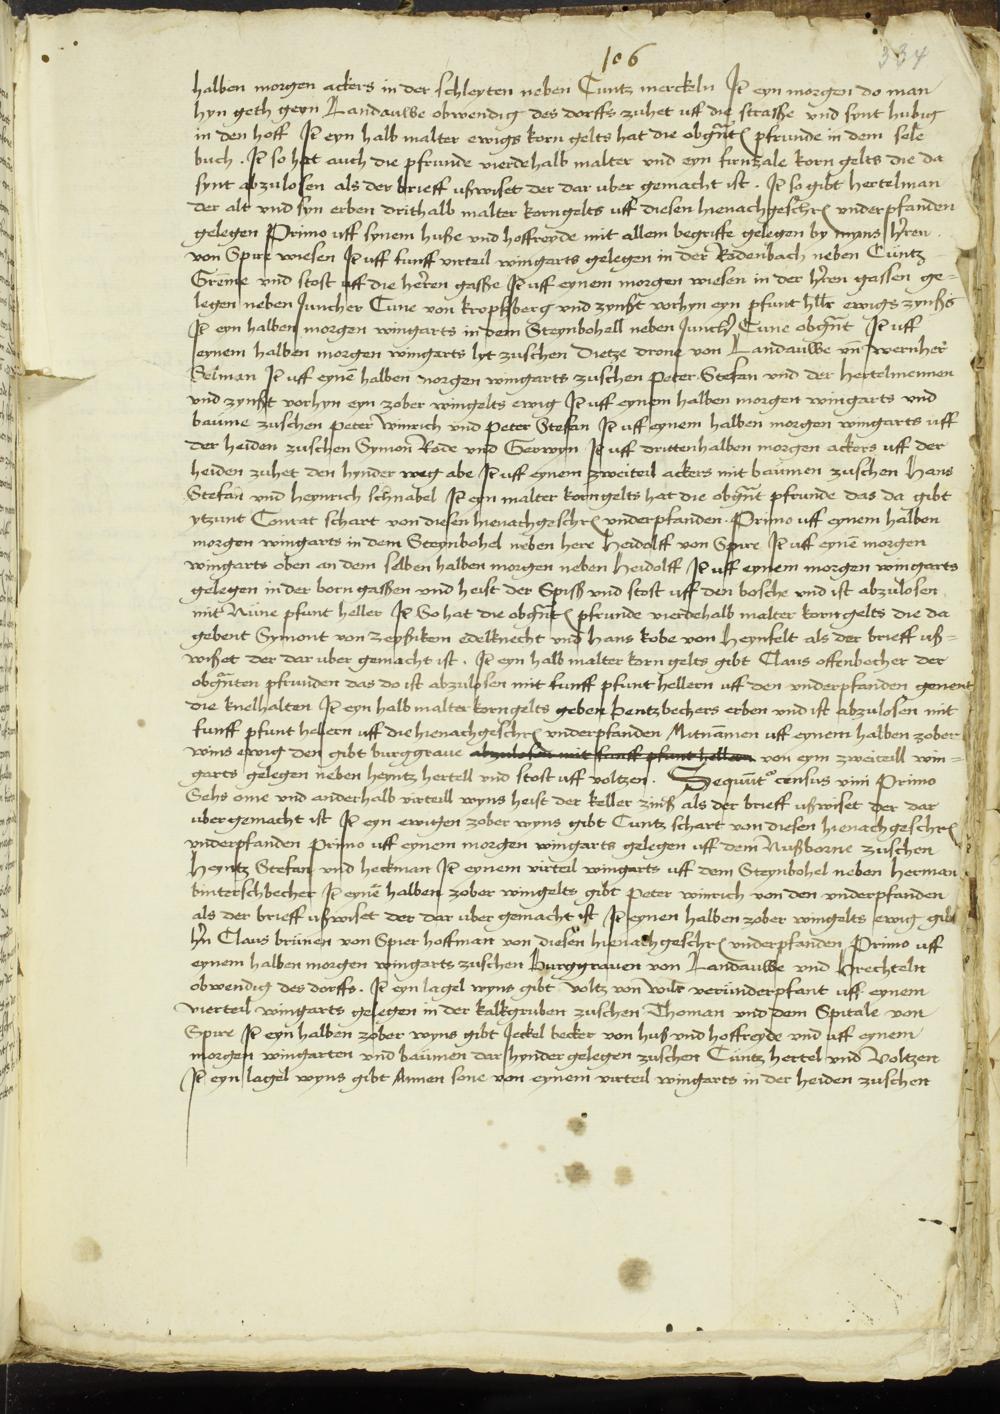 106
334
halben morgen ackers in der schleyten neben Cuntz merckeln It eyn morgen do man
hyn geth geyn Landauwe obwendig des dorffs zuhet uff die strasse und synt hubig
in den hoff It eyn halb malter ewigs korn gelts hat die obgnt pfrunde in dem sele
buch . It so hat auch die pfrunde vierdehalb malter und eyn firnzale korn gelts die da
synt abzulosen als der brieff ußwiset der dar uber gemacht ist . It so gibt hertelman
der alt und syn erben drithalb malter korngelts uff diesen hienachgeschr underpfanden
gelegen Primo uff synem huße und hoffreyde mit allem begriffe gelegen by myns hren
von Spire wiesen It uff funff virteil wingarts gelegen in der Rodenbach neben Cuntz
Greme und stost uff die herren gasse It uff eynem morgen wiesen in der hren gassen ge-
legen neben Juncher Cune von kropffsberg und zynßt vorhyn eyn pfunt hllr ewigs zynßs
It eyn halben morgen wingarts in dem Steynbohell neben Junchr Cune obgnt It uff
eynem halben morgen wingarts lyt zuschen Dietze drone von Landauwe un wernher
Selman It uff eyne halben morgen wingarts zuschen Peter Stefan und der hertelmennen
und zynßt vorhyn eyn zober wingelts ewig It uff eynem halben morgen wingarts und
baume zuschen Peter winrich und Peter Stefan It uff eynem halben morgen wingarts uff
der heiden zuschen Symon Rode und Gerwyn It uff drittenhalben morgen ackers uff der
heiden zuhet den hynder weg abe It uff eynem zweiteil ackers mit baumen zuschen Hans
Stefan und heynrich schnabel It eyn malter korngelts hat die obgnt pfrunde das da gibt
ytzunt Conrat schart von diesen hienachgeschr underpfanden . Primo uff eynem halben
morgen wingarts in dem Steynbohel neben here Heidolff von Spire It uff eyne morgen
wingarts oben an dem selben halben morgen neben Heidolff It uff eynem morgen wingarts
gelegen in der born gassen und heist der Spiß und stost uff den bosche und ist abzulosen
mit Nune pfunt heller It So hat die obgnt pfrunde vierdehalb malter korngelts die da
gebent Symont von zeyßikem edelknecht und hans kobe von Heynfelt als der brieff uß-
wißet der dar uber gemacht ist . It eyn halb malter korn gelts gibt Claus offenbecher der
obgnten pfrunden das do ist abzulosen mit funff pfunt hellern uff den underpfanden genent
die knelhalten It eyn halb malter korngelts geben bentzbechers erben und ist abzulosen mit
funff pfunt hellern uff die hienachgeschr underpfanden Mitnamen uff eynem halben zober
wins ewig den gibt burggrave abzulosen mit funff pfunt hellern von eym zweiteill win-
garts gelegen neben heyntz hertell und stost uff voltzen . Sequnt census vini Primo
Sehs ome und anderhalb virteill wyns heist der keller zinß als der brieff ußwiset der dar
uber gemacht ist It eyn ewigen zober wyns gibt Cuntz schart von diesen hienachgeschr
underpfanden Primo uff eynem morgen wingarts gelegen uff dem Nußborne zuschen
Heyntz Stefan und heckman It eynem virteil wingarts uff dem Steynbohel neben herman
binterschbecher It eyne halben zober wingelts gibt Peter winrich von den underpfanden
als der brieff ußwiset der dar uber gemacht ist It eynen halben zober wingelts ewig gibt
hrn Claus brunen von Spier hoffman von diesen hienachgeschr underpfanden Primo uff
eynem halben morgen wingarts zuschen burggraven von Landauwe und brechteln
obwendig des dorffs . It eyn lagel wyns gibt voltz von wilr verunderpfant uff eynem
vierteil wingarts gelegen in der kalkgruben zuschen Thoman und dem Spitale von
Spire It eyn halben zober wyns gibt Jeckel becker von huß und hoffreyde und uff eynem
morgen wingarten und baumen dar hynder gelegen zuschen Cuntz hertel und Voltzen
It eyn lagel wyns gibt Annen sone von eynem virteil wingarts in der heiden zuschen